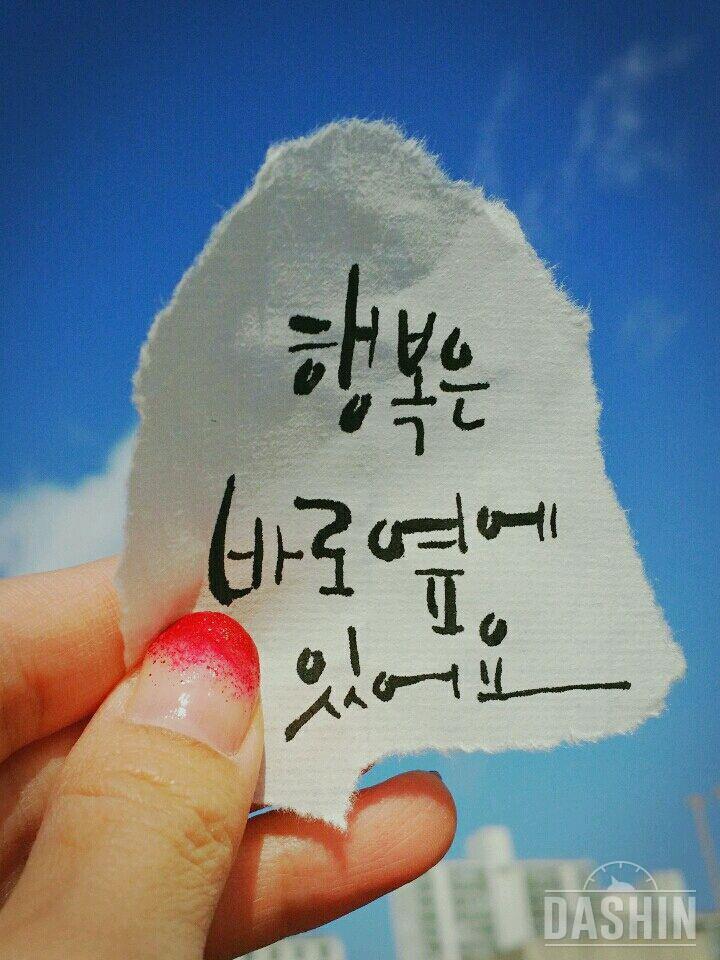 행복은
바로옆에
있어요
DASHIN